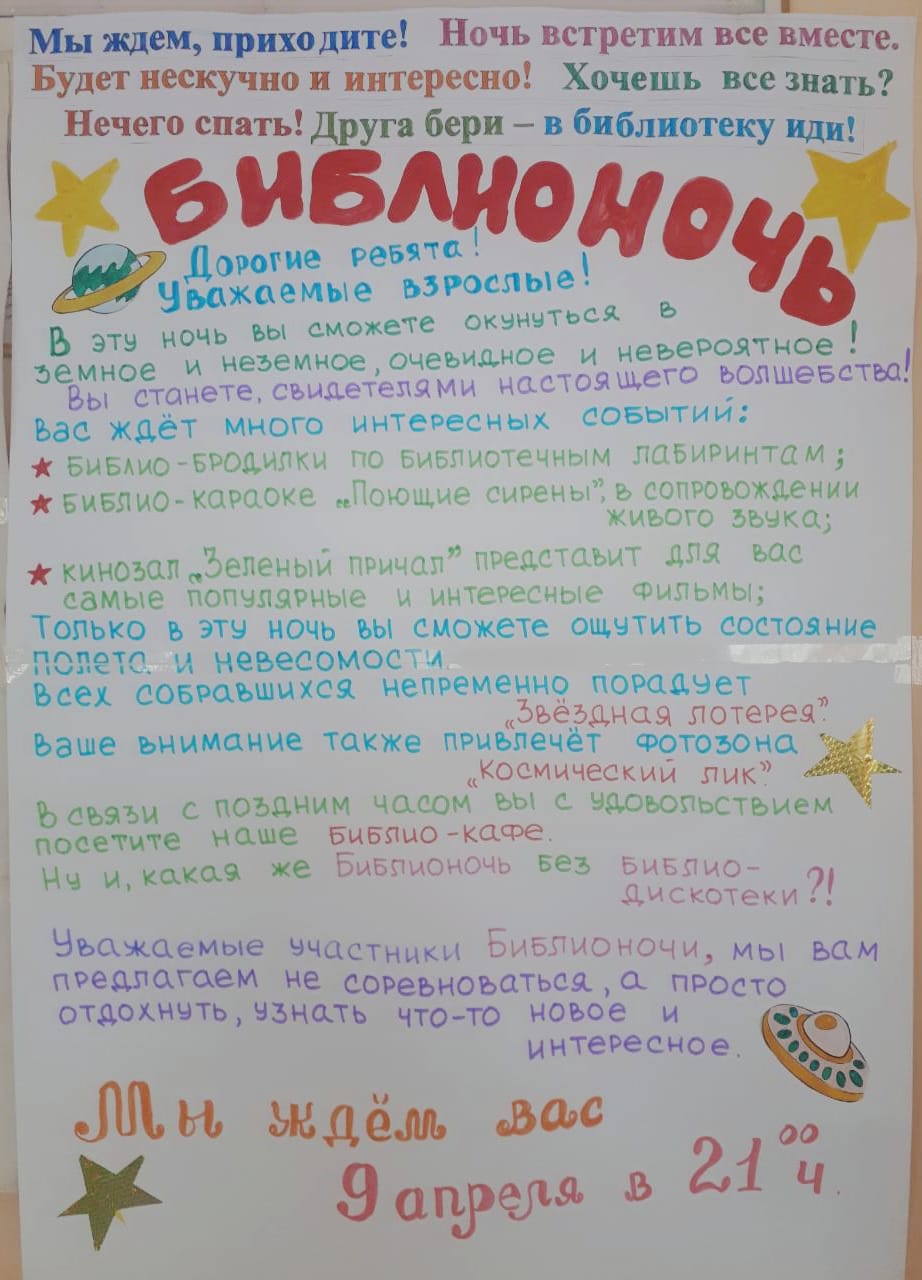 Мы ждем, приходите! Ночь встретим все вместе.
Будет нескучно и интересно! Хочешь все знать?
Нечего спать! Друга бери – в библиотеку иди!
БИБЛИОНОЧЬ
Дорогие ребята!
Уважаемые взрослые!
В эту ночь вы сможете окунуться в
земное и неземное, очевидное и невероятное!
Вы станете, свидетелями настоящего волшебства!
Вас ждёт много интересных событий:
★ БИБЛИО-БРОДИЛКИ по библиотечным лабиринтам;
★ БИБЛИО-КАРАОКЕ „Поющие сирены”, в сопровождении
живого звука;
★ кинозал „Зеленый причал” представит для вас
самые популярные и интересные фильмы;
Только в эту ночь вы сможете ощутить состояние
полета и невесомости.
Всех собравшихся непременно порадует
„Звёздная лотерея”.
Ваше внимание также привлечёт фотозона
„Космический лик”.
В связи с поздним часом вы с удовольствием
посетите наше Библио-кафе.
Ну и, какая же Библионочь без Библио-
дискотеки?!
Уважаемые участники Библионочи, мы вам
предлагаем не соревноваться, а просто
отдохнуть, узнать что-то новое и
интересное.
Мы ждём вас
9 апреля в 21⁰⁰ ч.